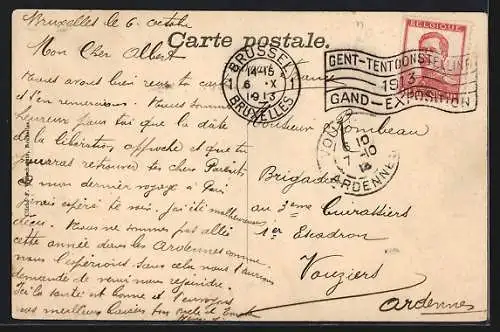 Bruxelles le 6 octobre
Mon Cher Albert
Carte postale.
BELGIQUE
BRUSSEL
14-15
6 X
1913
BRUXELLES
1 1
GENT-TENTOONSTELLING
1913
GAND-EXPOSITION
Nous avons bien reçu ta carte
et t'en remercions. Nous sommes
heureux pour toi que la date
de la libération approche et que tu
pourras retrouver tes chers Parents
mon dernier voyage à
espéré te voir. J'ai été malheureusement
déçu. Nous ne sommes pas allé
cette année dans les Ardennes comme
nous l'espérions sans cela nous t'aurions
demandé de venir nous rejoindre.
Ici la santé est bonne et t'envoyons
nos meilleurs baisers
France
Monsieur Rombeau
Brigadier
au 3eme Cuirassiers
1er Escadron
Vouziers
Ardennes
VOUZ
10
7 -10
13
ARDENNES